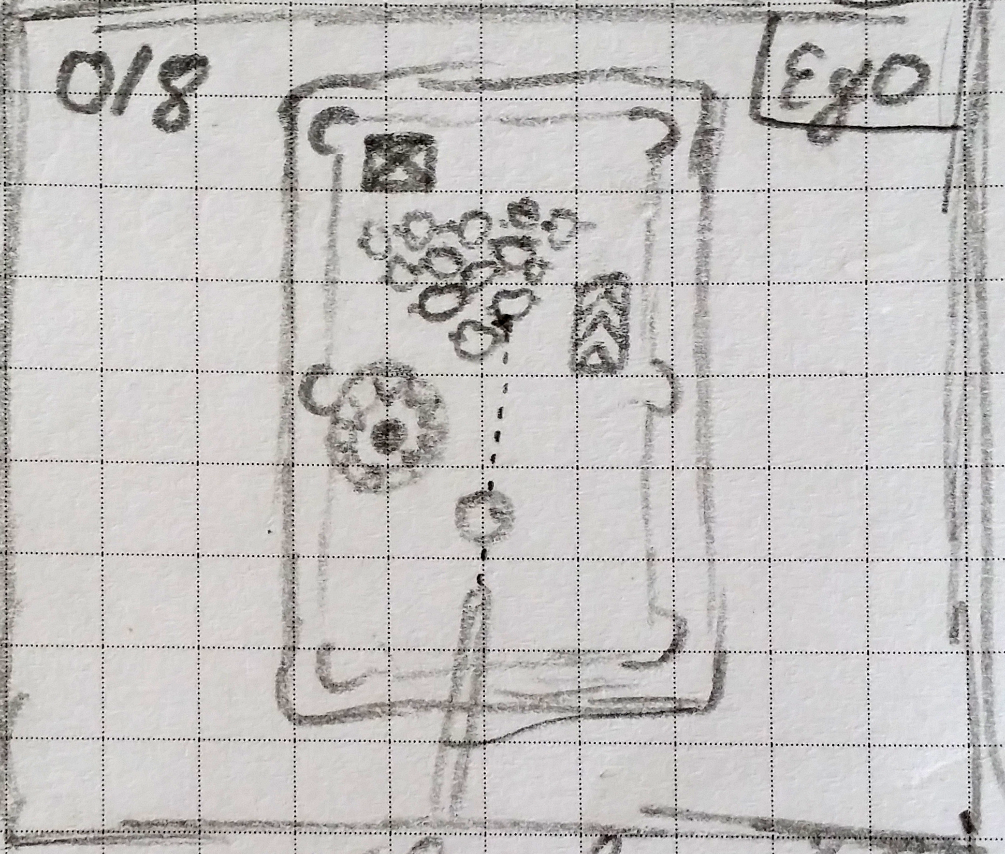 0/8
EgO